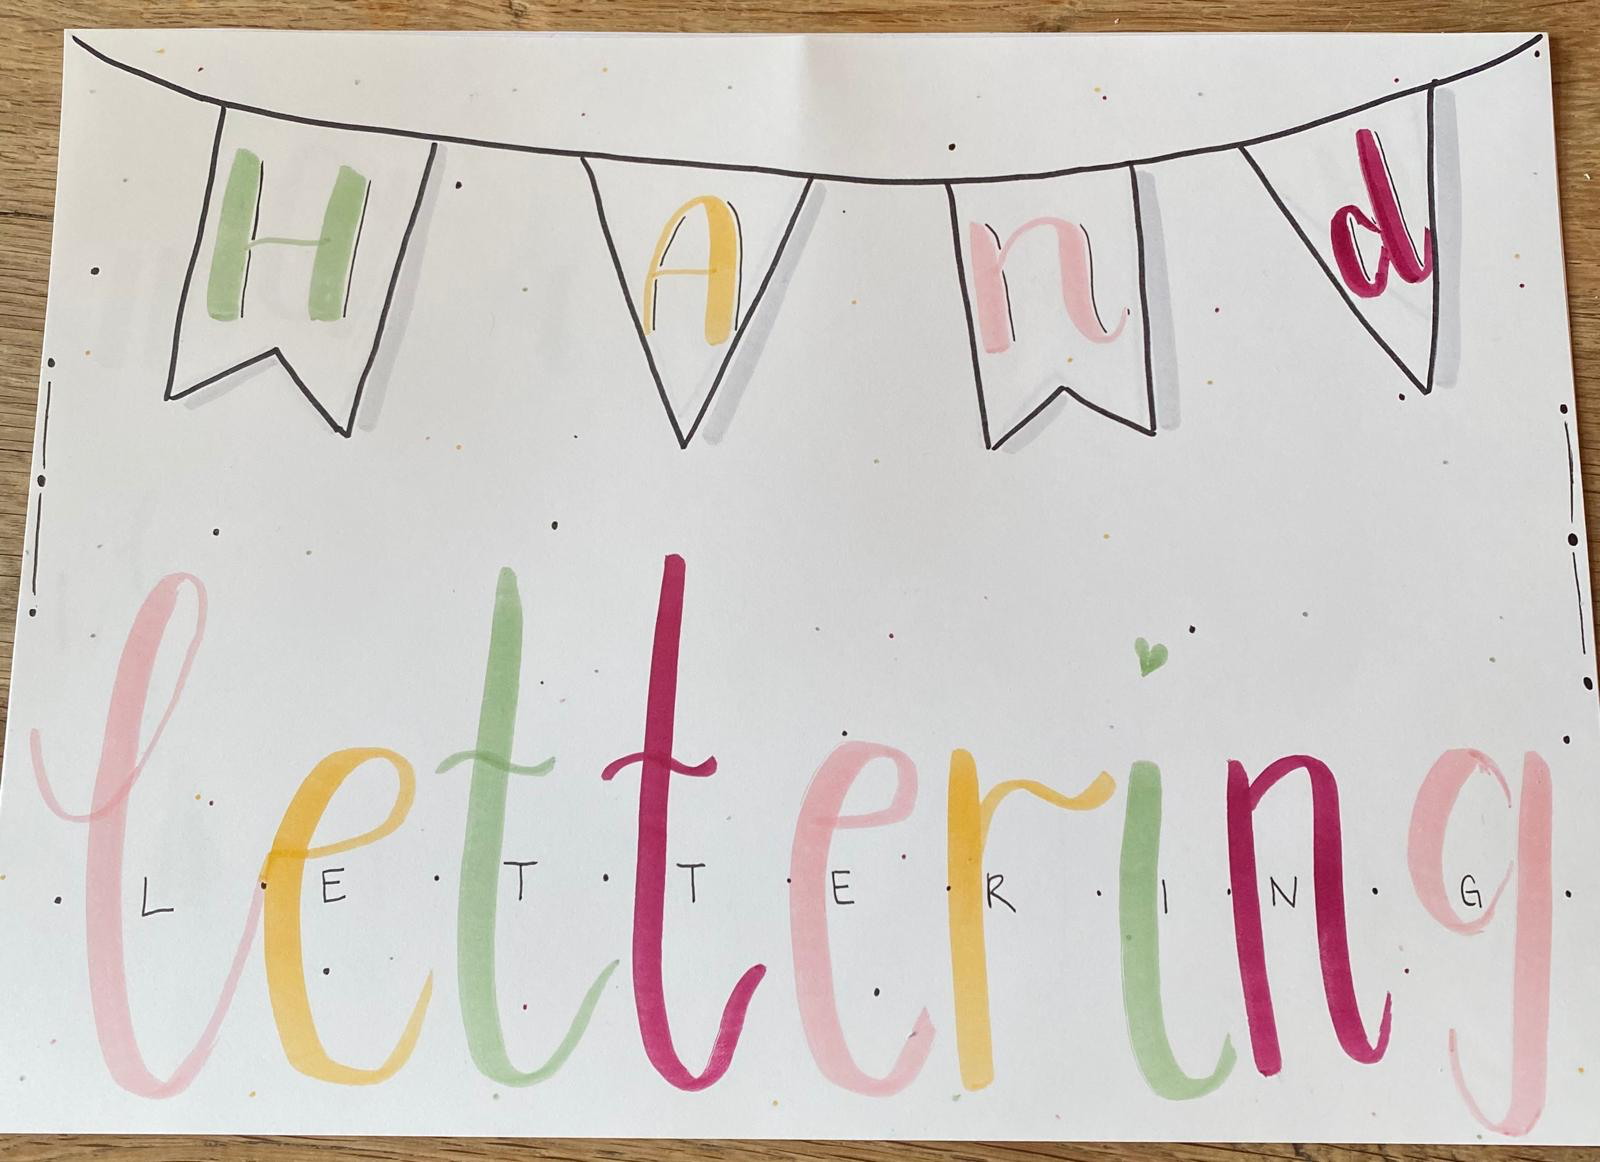 HAnd
lettering
L · E · T · T · E · R · I · N · G